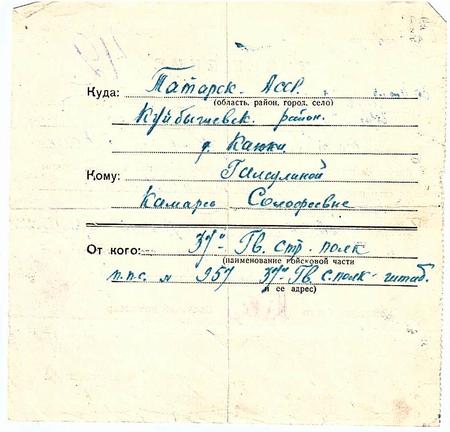 Куда: Татарск. Асср.
(область, район, город, село)
Куйбышевск. район.
д. Каюки
Кому: Галеулиной
Камаре
От кого: 37й Гв. стр. полк
(наименование войсковой части
п.п.с. № 957 37й Гв. с. полк - штаб.
и ее адрес)